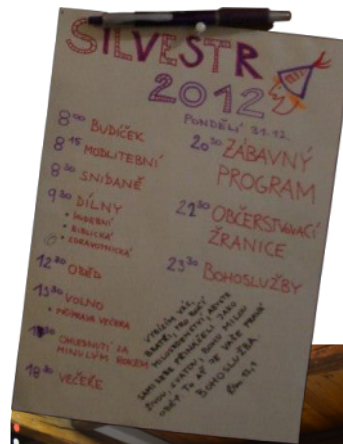 SILVESTR
2012
PONDĚLÍ 31.12.
8⁰⁰ BUDÍČEK
8¹⁵ MODLITEBNÍ
8³⁰ SNÍDANĚ
9³⁰ DÍLNY
• HUDEBNÍ
• BIBLICKÁ
• ZDRAVOTNICKÁ
12³⁰ OBĚD
13³⁰ VOLNO
• PŘÍPRAVA VEČERA
OHLÉDNUTÍ ZA
MINULÝM ROKEM
18³⁰ VEČEŘE
20³⁰ ZÁBAVNÝ
PROGRAM
22³⁰ OBČERSTVOVACÍ
ŽRANICE
23³⁰ BOHOSLUŽBY
VYBÍZÍM VÁS,
BRATŘI, PRO BOŽÍ
MILOSRDENSTVÍ, ABYSTE
SAMI SEBE PŘINÁŠELI JAKO
ŽIVOU, SVATOU, BOHU MILOU
OBĚŤ. TO AŤ JE VAŠE PRAVÁ
BOHOSLUŽBA.
ŘÍM 12,1